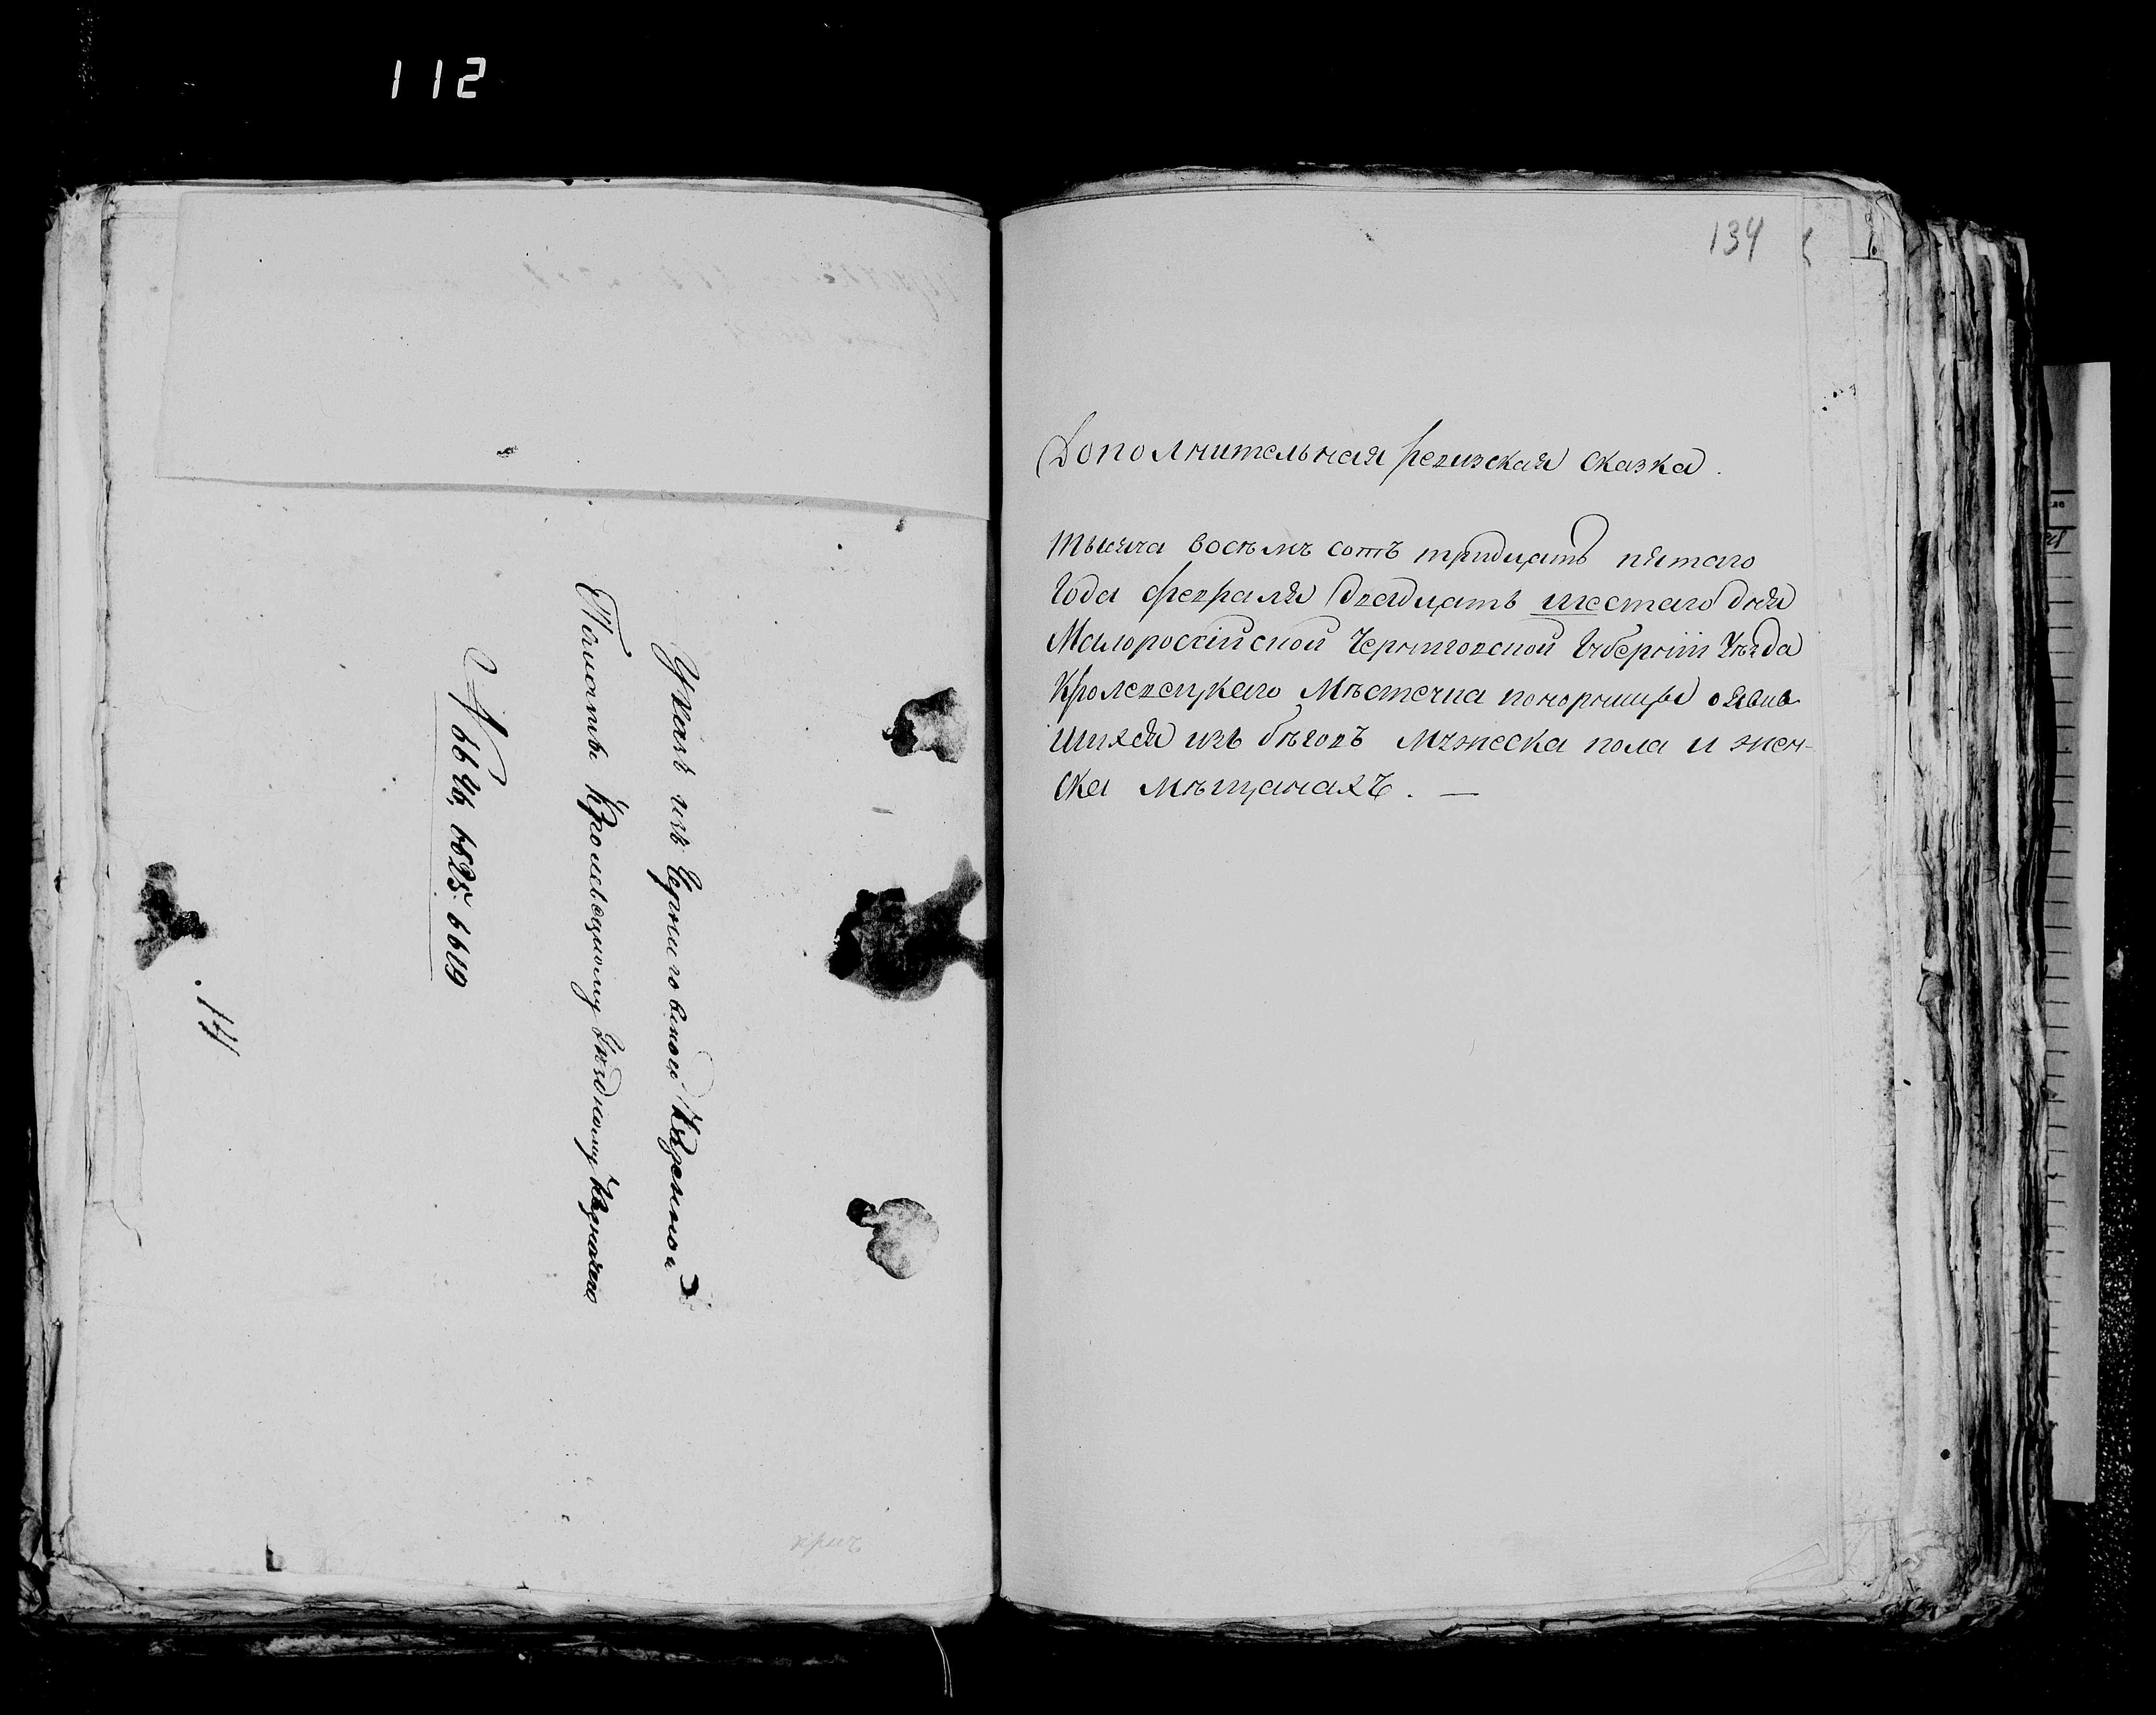 112
Указъ изъ Черниговской Казенной
Палаты Кролевецкому Уѣздному Казначею
№ 6626, 6625. 6609
14
134
Дополнительная ревизская сказка.
тысяча восѣмъ сотъ тридцать пятаго
Года февраля двадцать шестаго дня
Малороссійской Черниговской Губерніи Уѣзда
Кролевецкаго Мѣстечка понорницы о явив
шихся изъ бѣговъ мужеска пола и жен-
ска мѣщанахъ. —